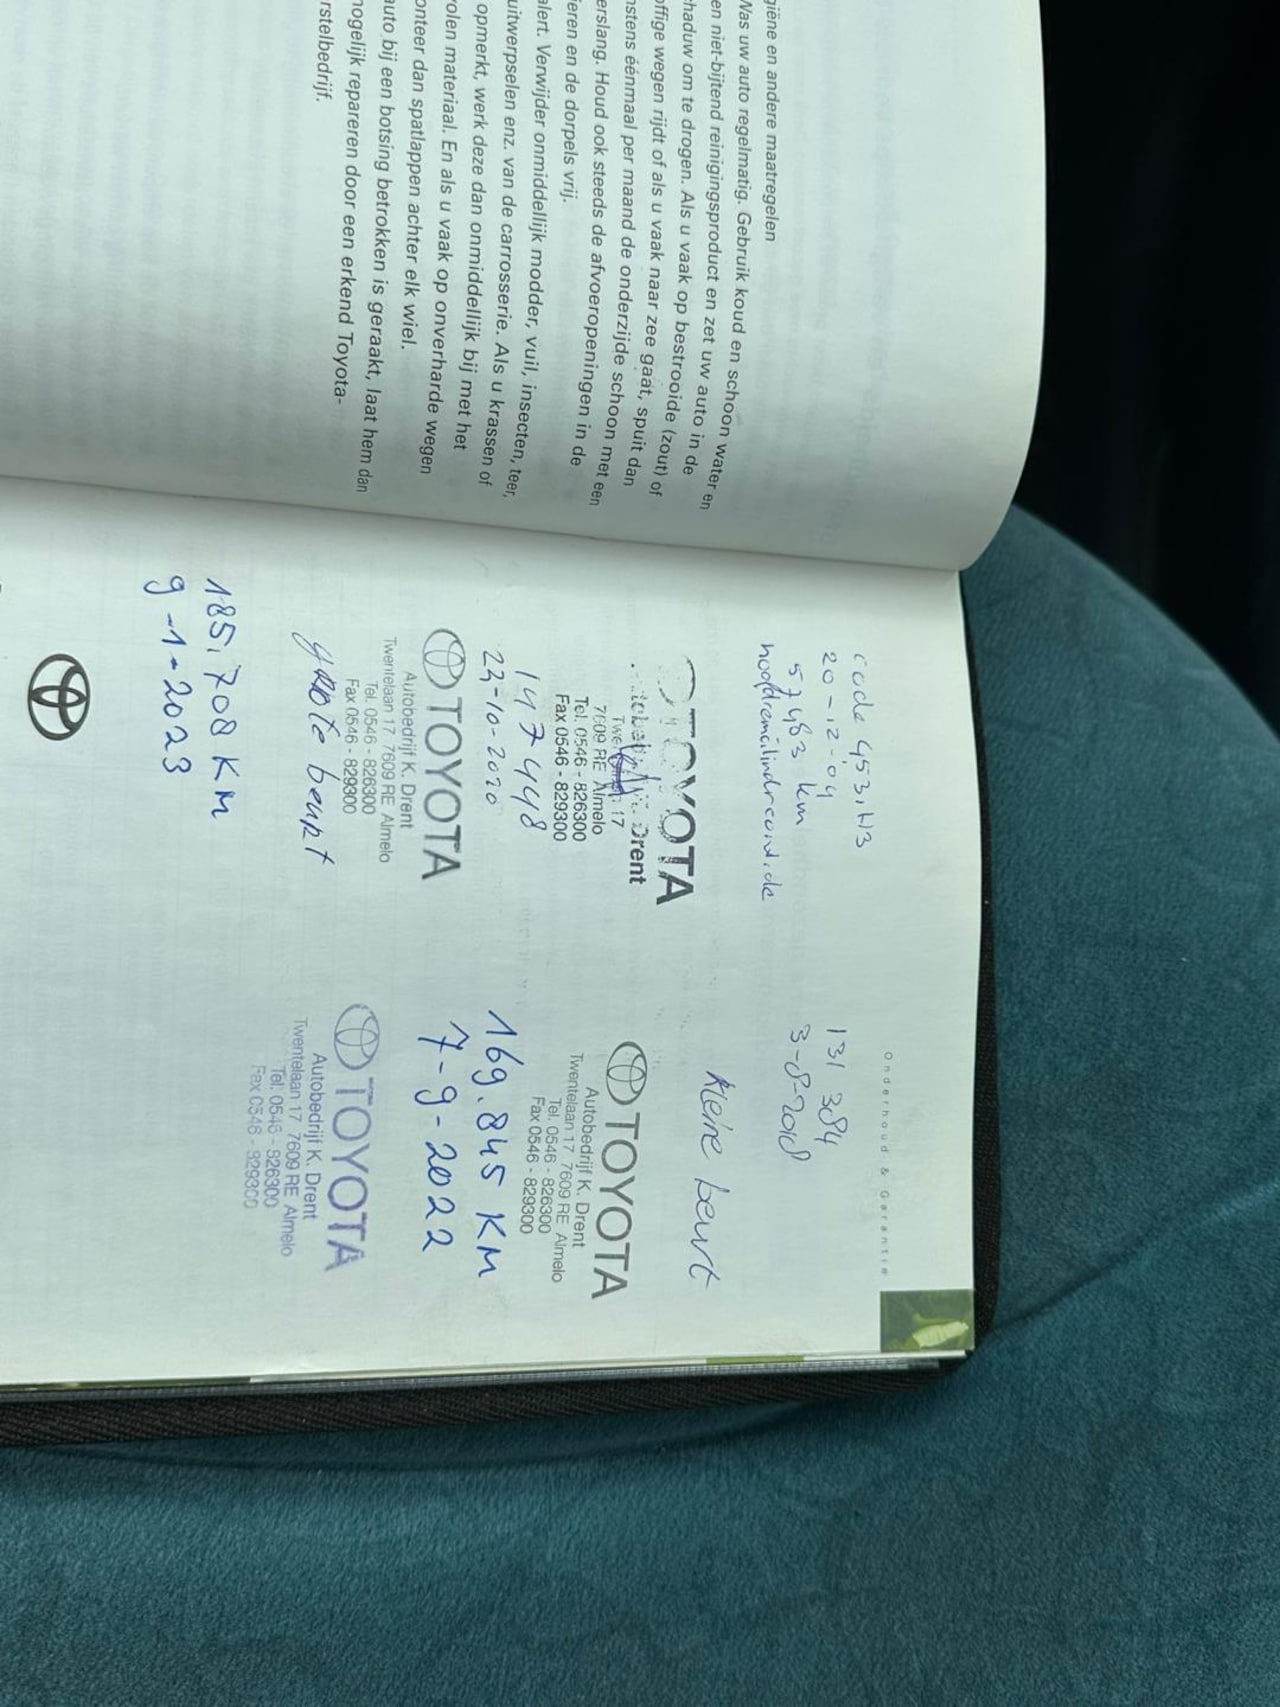 giëne en andere maatregelen
Was uw auto regelmatig. Gebruik koud en schoon water en
en niet-bijtend reinigingsproduct en zet uw auto in de
haduw om te drogen. Als u vaak op bestrooide (zout) of
offige wegen rijdt of als u vaak naar zee gaat, spuit dan
nstens éénmaal per maand de onderzijde schoon met een
erslang. Houd ook steeds de afvoeropeningen in de
eren en de dorpels vrij.
alert. Verwijder onmiddellijk modder, vuil, insecten, teer,
uitwerpselen enz. van de carrosserie. Als u krassen of
opmerkt, werk deze dan onmiddellijk bij met het
olen materiaal. En als u vaak op onverharde wegen
onteer dan spatlappen achter elk wiel.
auto bij een botsing betrokken is geraakt, laat hem dan
ogelijk repareren door een erkend Toyota-
rstelbedrijf.
Onderhoud & Garantie
code 453, H3
20-12-04
57483 km
TOYOTA
Drent
17
7609 RE Almelo
Tel. 0546 - 826300
Fax 0546 - 829300
147448
23-10-2020
TOYOTA
Autobedrijf K. Drent
Twentelaan 17 7609 RE Almelo
Tel. 0546 - 826300
Fax 0546 - 829300
grote beurt
185.708 KM
9-1-2023
131 384
3-8-2018
kleine beurt
TOYOTA
Autobedrijf K. Drent
Twentelaan 17 7609 RE Almelo
Tel. 0546 - 826300
Fax 0546 - 829300
169.845 KM
7-9-2022
TOYOTA
Autobedrijf K. Drent
Twentelaan 17 7609 RE Almelo
Tel. 0546 - 826300
Fax 0546 - 829300